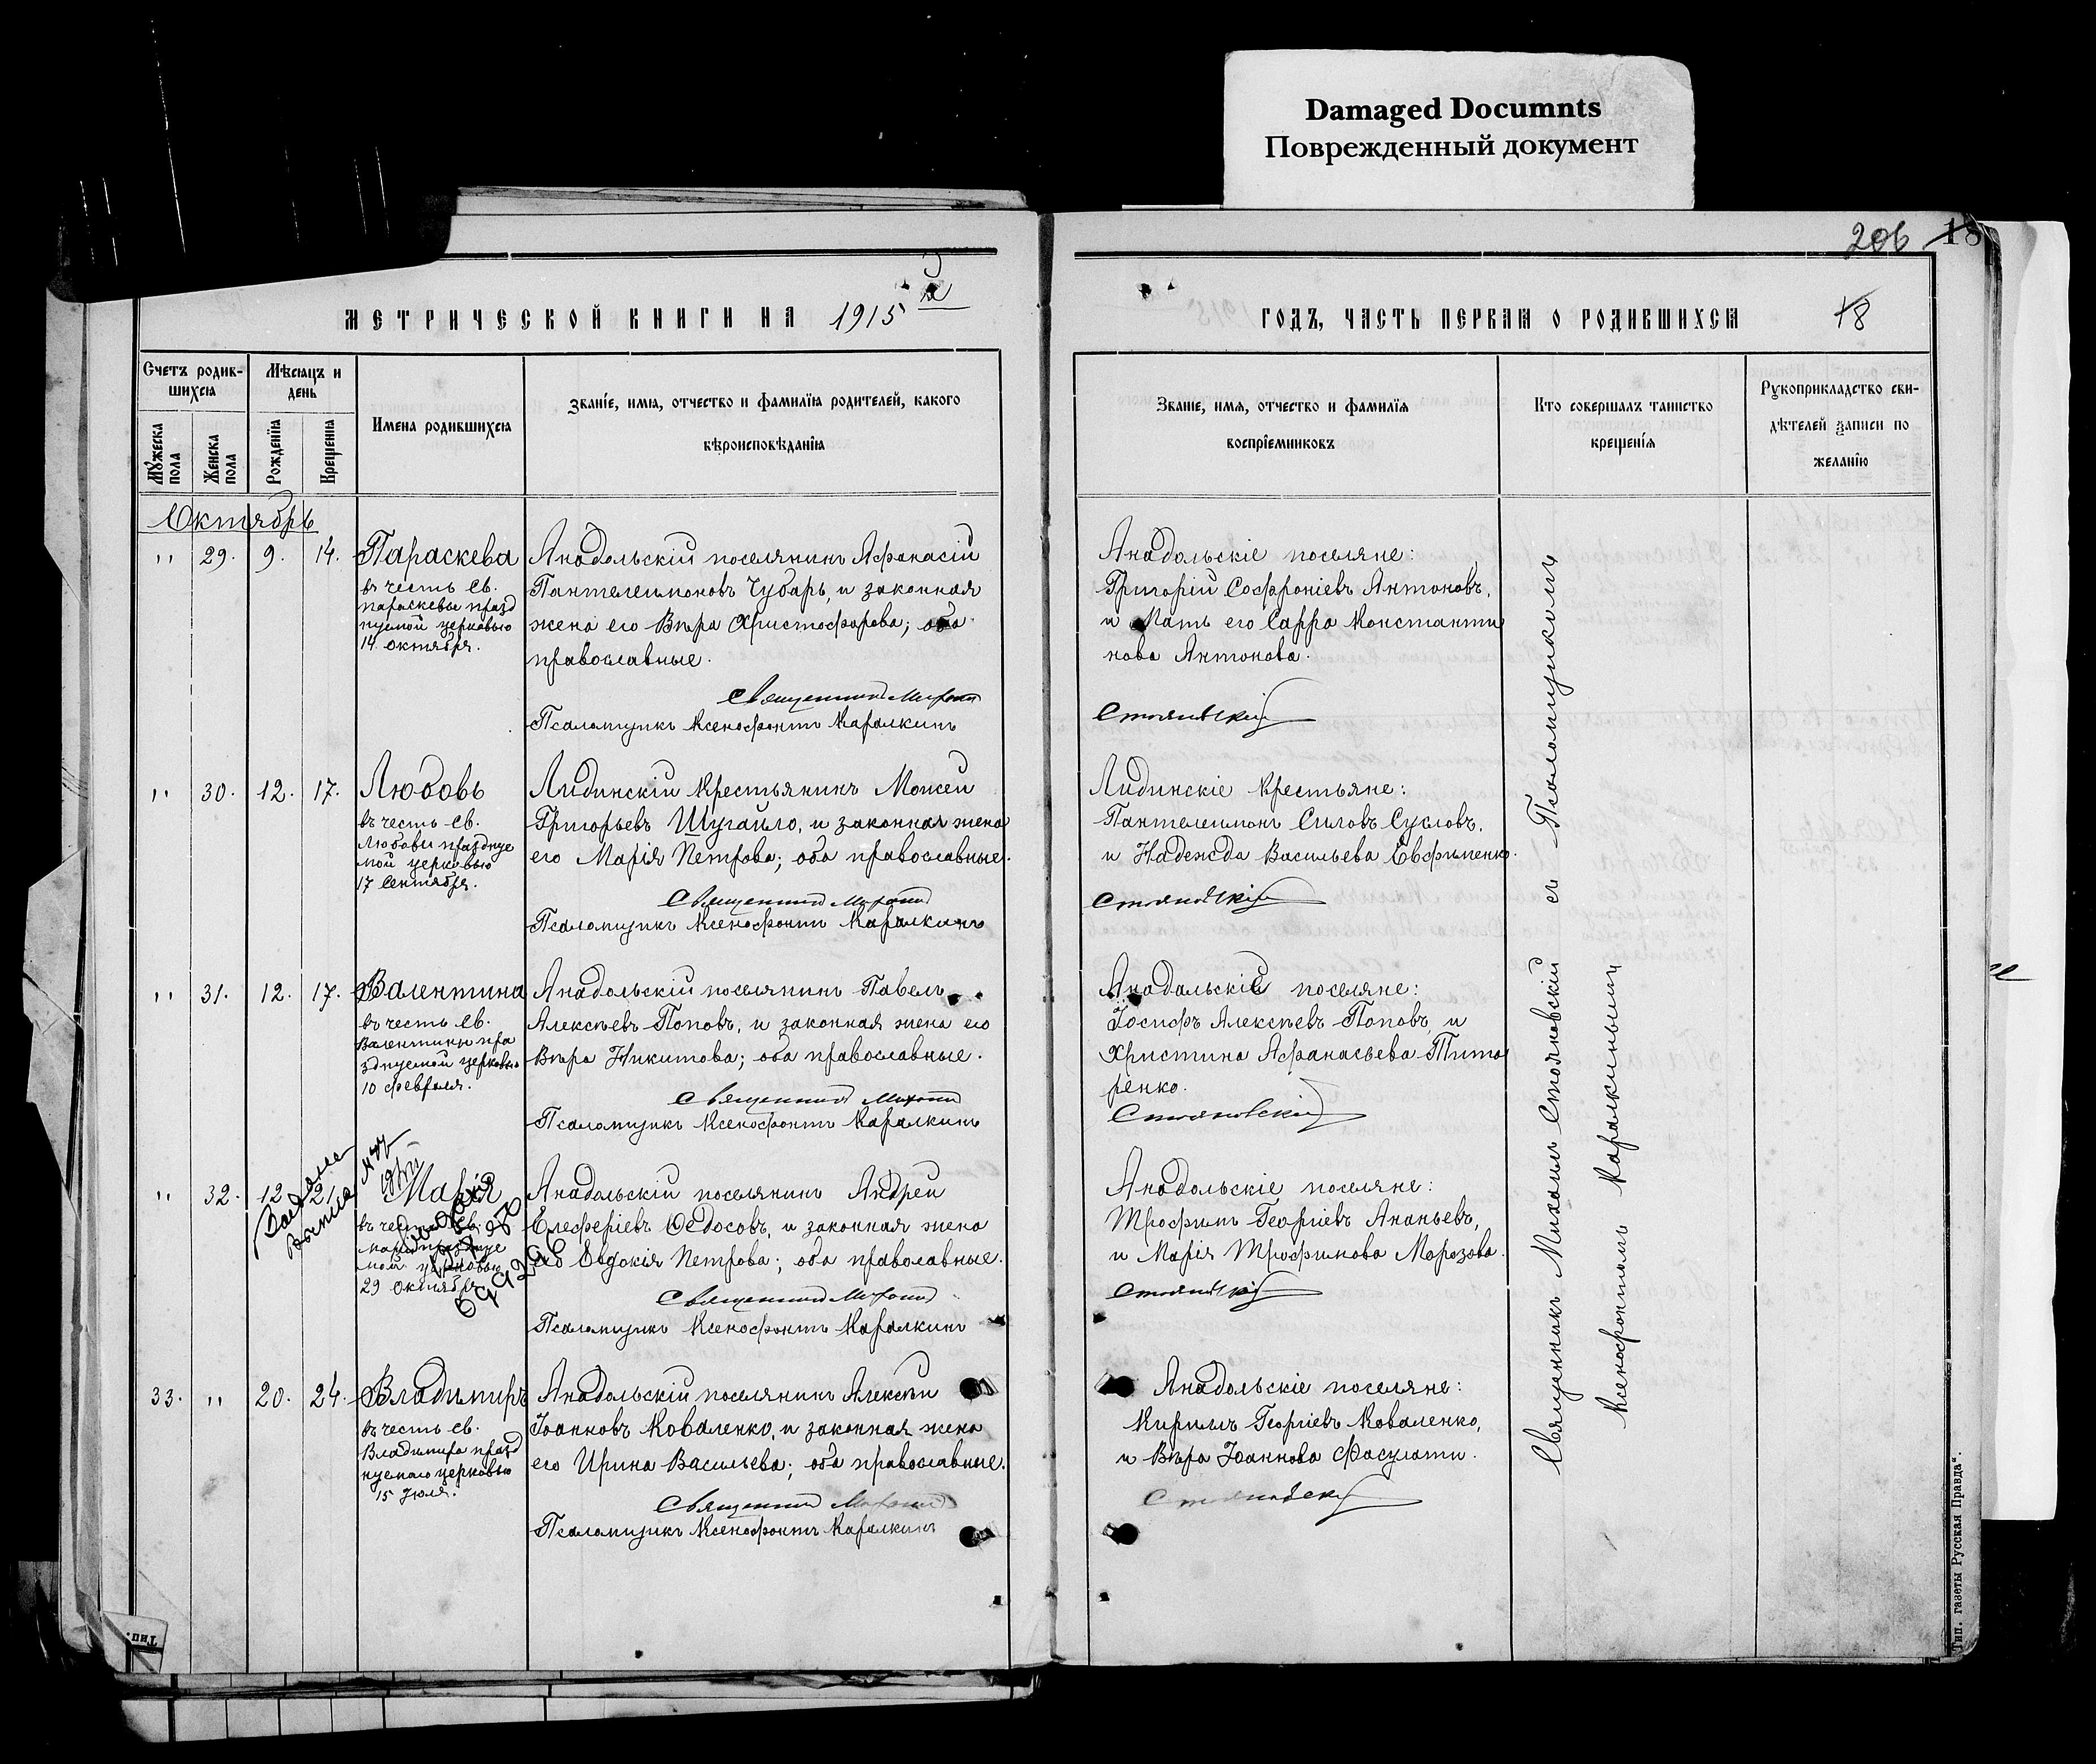 Damaged Documnts
Поврежденный документ
206 18
МЕТРИЧЕСКОЙ КНИГИ НА 1915
ГОДЪ, ЧАСТЬ ПЕРВАЯ О РОДИВШИХСЯ 18
Счетъ родив-
шихся
Мѣсяцъ и
день
Мужеска
пола
Женска
пола
Рожденїя
Крещенїя
Имена родившихся
Званїе, имя, отчество и фамилїя родителей, какого
вѣроисповѣданїя
Званїе, имя, отчество и фамилїя
воспрїемниковъ
Кто совершалъ таинство
крещенїя
Рукоприкладство сви-
дѣтелей записи по
желанїю
Октябрь
" 29. 9. 14. Параскева
въ честь Св.
Параскевы празд
нуемой церковью
14 октября.
Анадольскій поселянинъ Афанасій
Пантелеимоновъ Чубарь, и законная
жена его Вѣра Христофорова; оба
православные.
Священникъ Михаилъ
Псаломщикъ Ксенофонтъ Каралкинъ
Анадольскіе поселяне:
Григорій Софроніевъ Антоновъ,
и Мать его Сарра Константи
нова Антонова.
Стояновскій
" 30. 12. 17. Любовь
въ честь Св.
Любови празднуе
мой церковью
17 Сентября.
Лидинскій крестьянинъ Моисей
Григорьевъ Шугайло, и законная жена
его Марія Петрова; оба православные.
Священникъ Михаилъ
Псаломщикъ Ксенофонтъ Каралкинъ
Лидинскіе крестьяне:
Пантелеимонъ Силовъ Сусловъ,
и Надежда Васильева Евфименко.
Стояновскій
" 31. 12. 17. Валентина
въ честь Св.
Валентины пра
зднуемой церковью
10 февраля.
Анадольскій поселянинъ Павелъ
Алексѣевъ Поповъ, и законная жена его
Вѣра Никитова; оба православные.
Священникъ Михаилъ
Псаломщикъ Ксенофонтъ Каралкинъ
Анадольскіе поселяне:
Іосифъ Алексѣевъ Поповъ, и
Христина Афанасьева Тито
ренко.
Стояновскій
" 32. 12. 21. Марія
въ честь Св.
Маріи празднуе
мой церковью
29 октября
Анадольскій поселянинъ Андрей
Елеферіевъ Ѳедосовъ, и законная жена
его Евдокія Петрова; оба православные.
Священникъ Михаилъ
Псаломщикъ Ксенофонтъ Каралкинъ
Анадольскіе поселяне:
Трофимъ Георгіевъ Ананьевъ,
и Марія Трофимова Морозова.
Стояновскій
33. " 20. 24. Владиміръ
въ честь Св.
Владиміра празд
нуемаго церковью
15 Іюля.
Анадольскій поселянинъ Алексѣй
Іоанновъ Коваленко, и законная жена
его Ирина Васильева; оба православные.
Священникъ Михаилъ
Псаломщикъ Ксенофонтъ Каралкинъ
Анадольскіе поселяне:
Кириллъ Георгіевъ Коваленко,
и Вѣра Іоаннова Фасулати.
Стояновскій
Священникъ Михаилъ Стояновскій съ Псаломщикомъ
Ксенофонтомъ Каралкинымъ
Тип. газеты Русская Правда".
Тип.